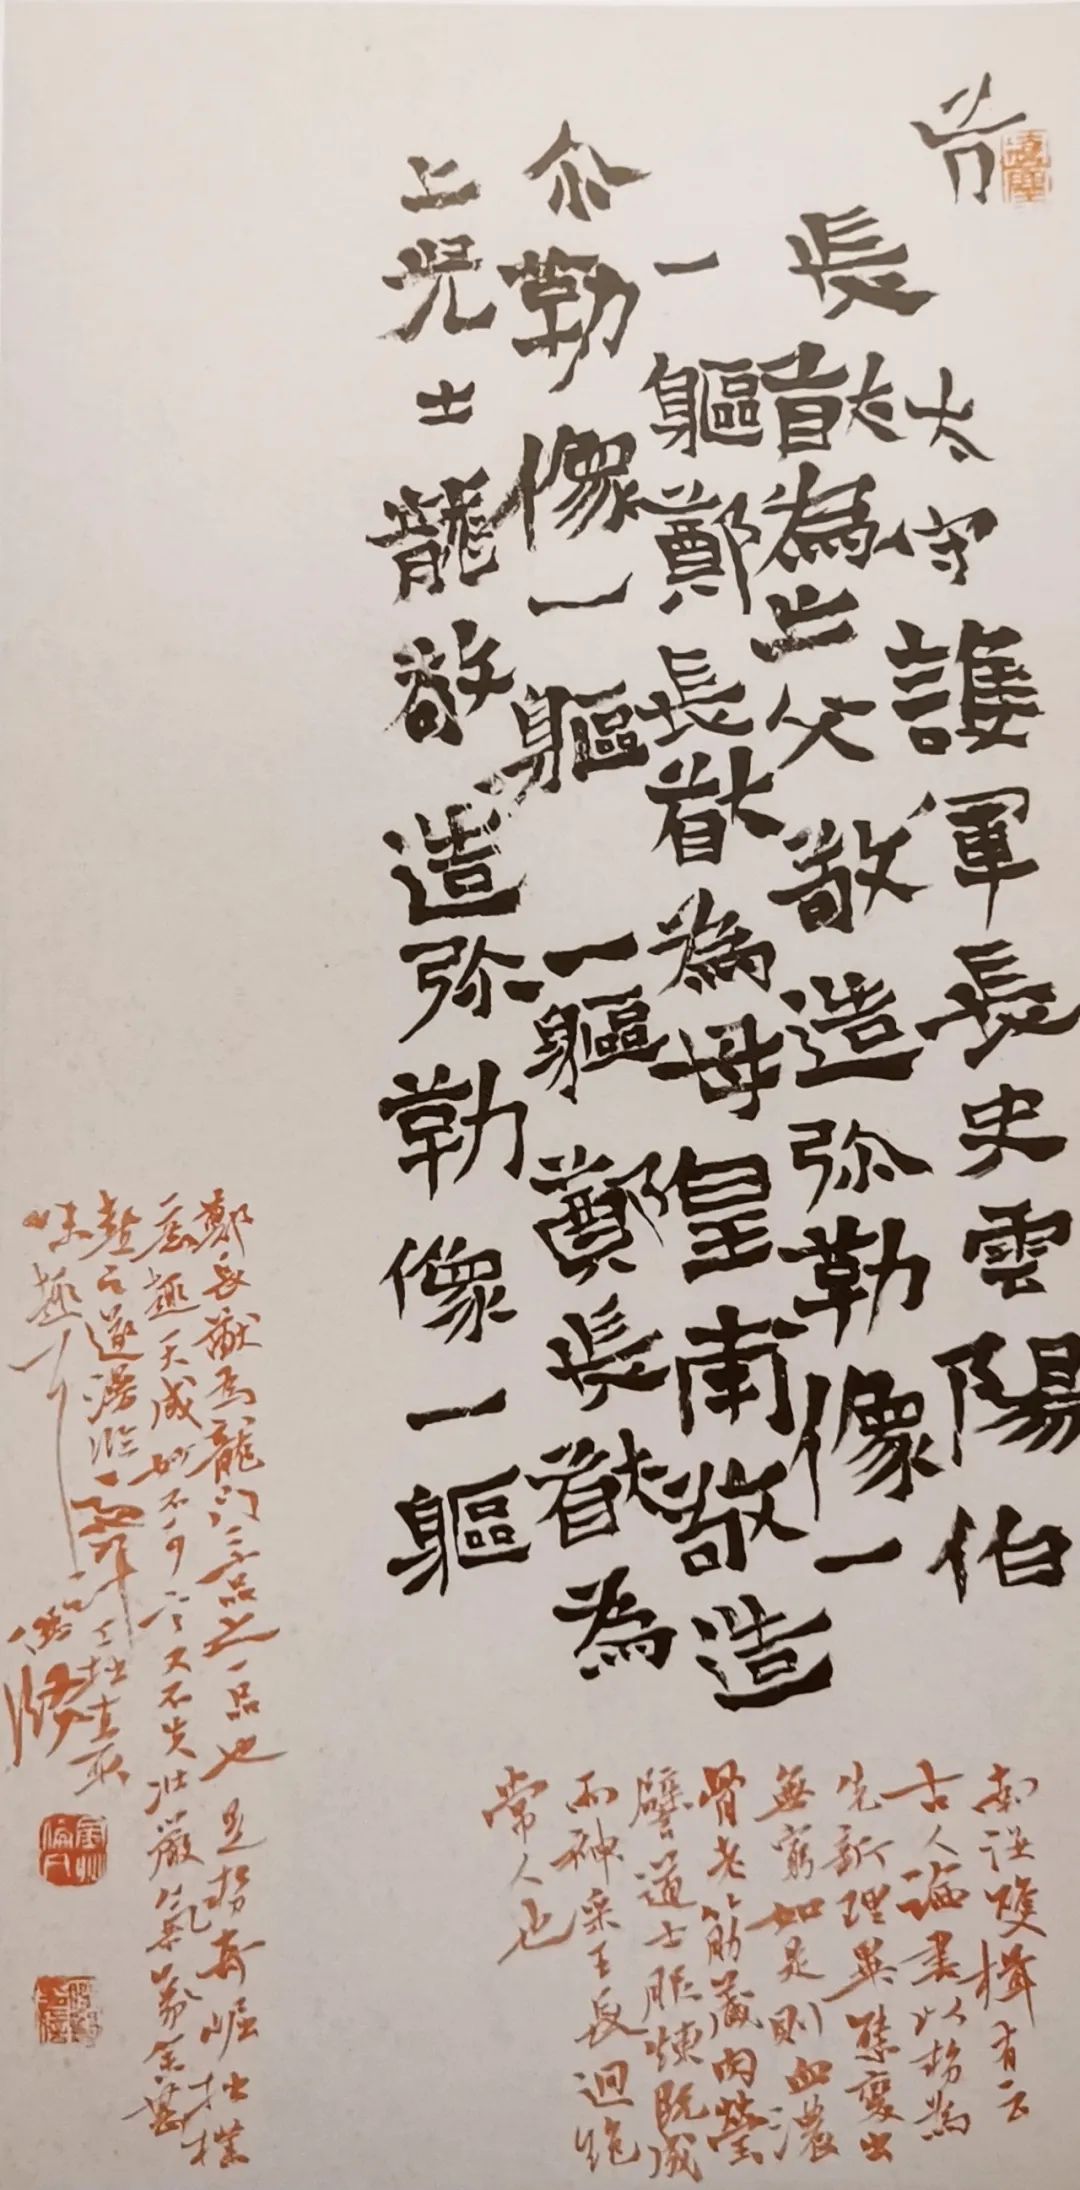 前
太守護軍長史雲陽伯
長猷為亡父敬造弥勒像一
一軀鄭長猷為母皇南敬造
尒勒像一軀一軀鄭長猷為
亡兒士龍敬造弥勒像一軀
南海雙楫有云
古人論書以勢為
先新理異態變出
無窮如是則血濃
骨老筋藏肉瑩
譬道士服煉既成
而神采王長迥絶
常人也
鄭長猷為龍門二十品之一品也是拐奇崛拙樸
意趣天成妙不可言又不失壯嚴氣象余甚
趣